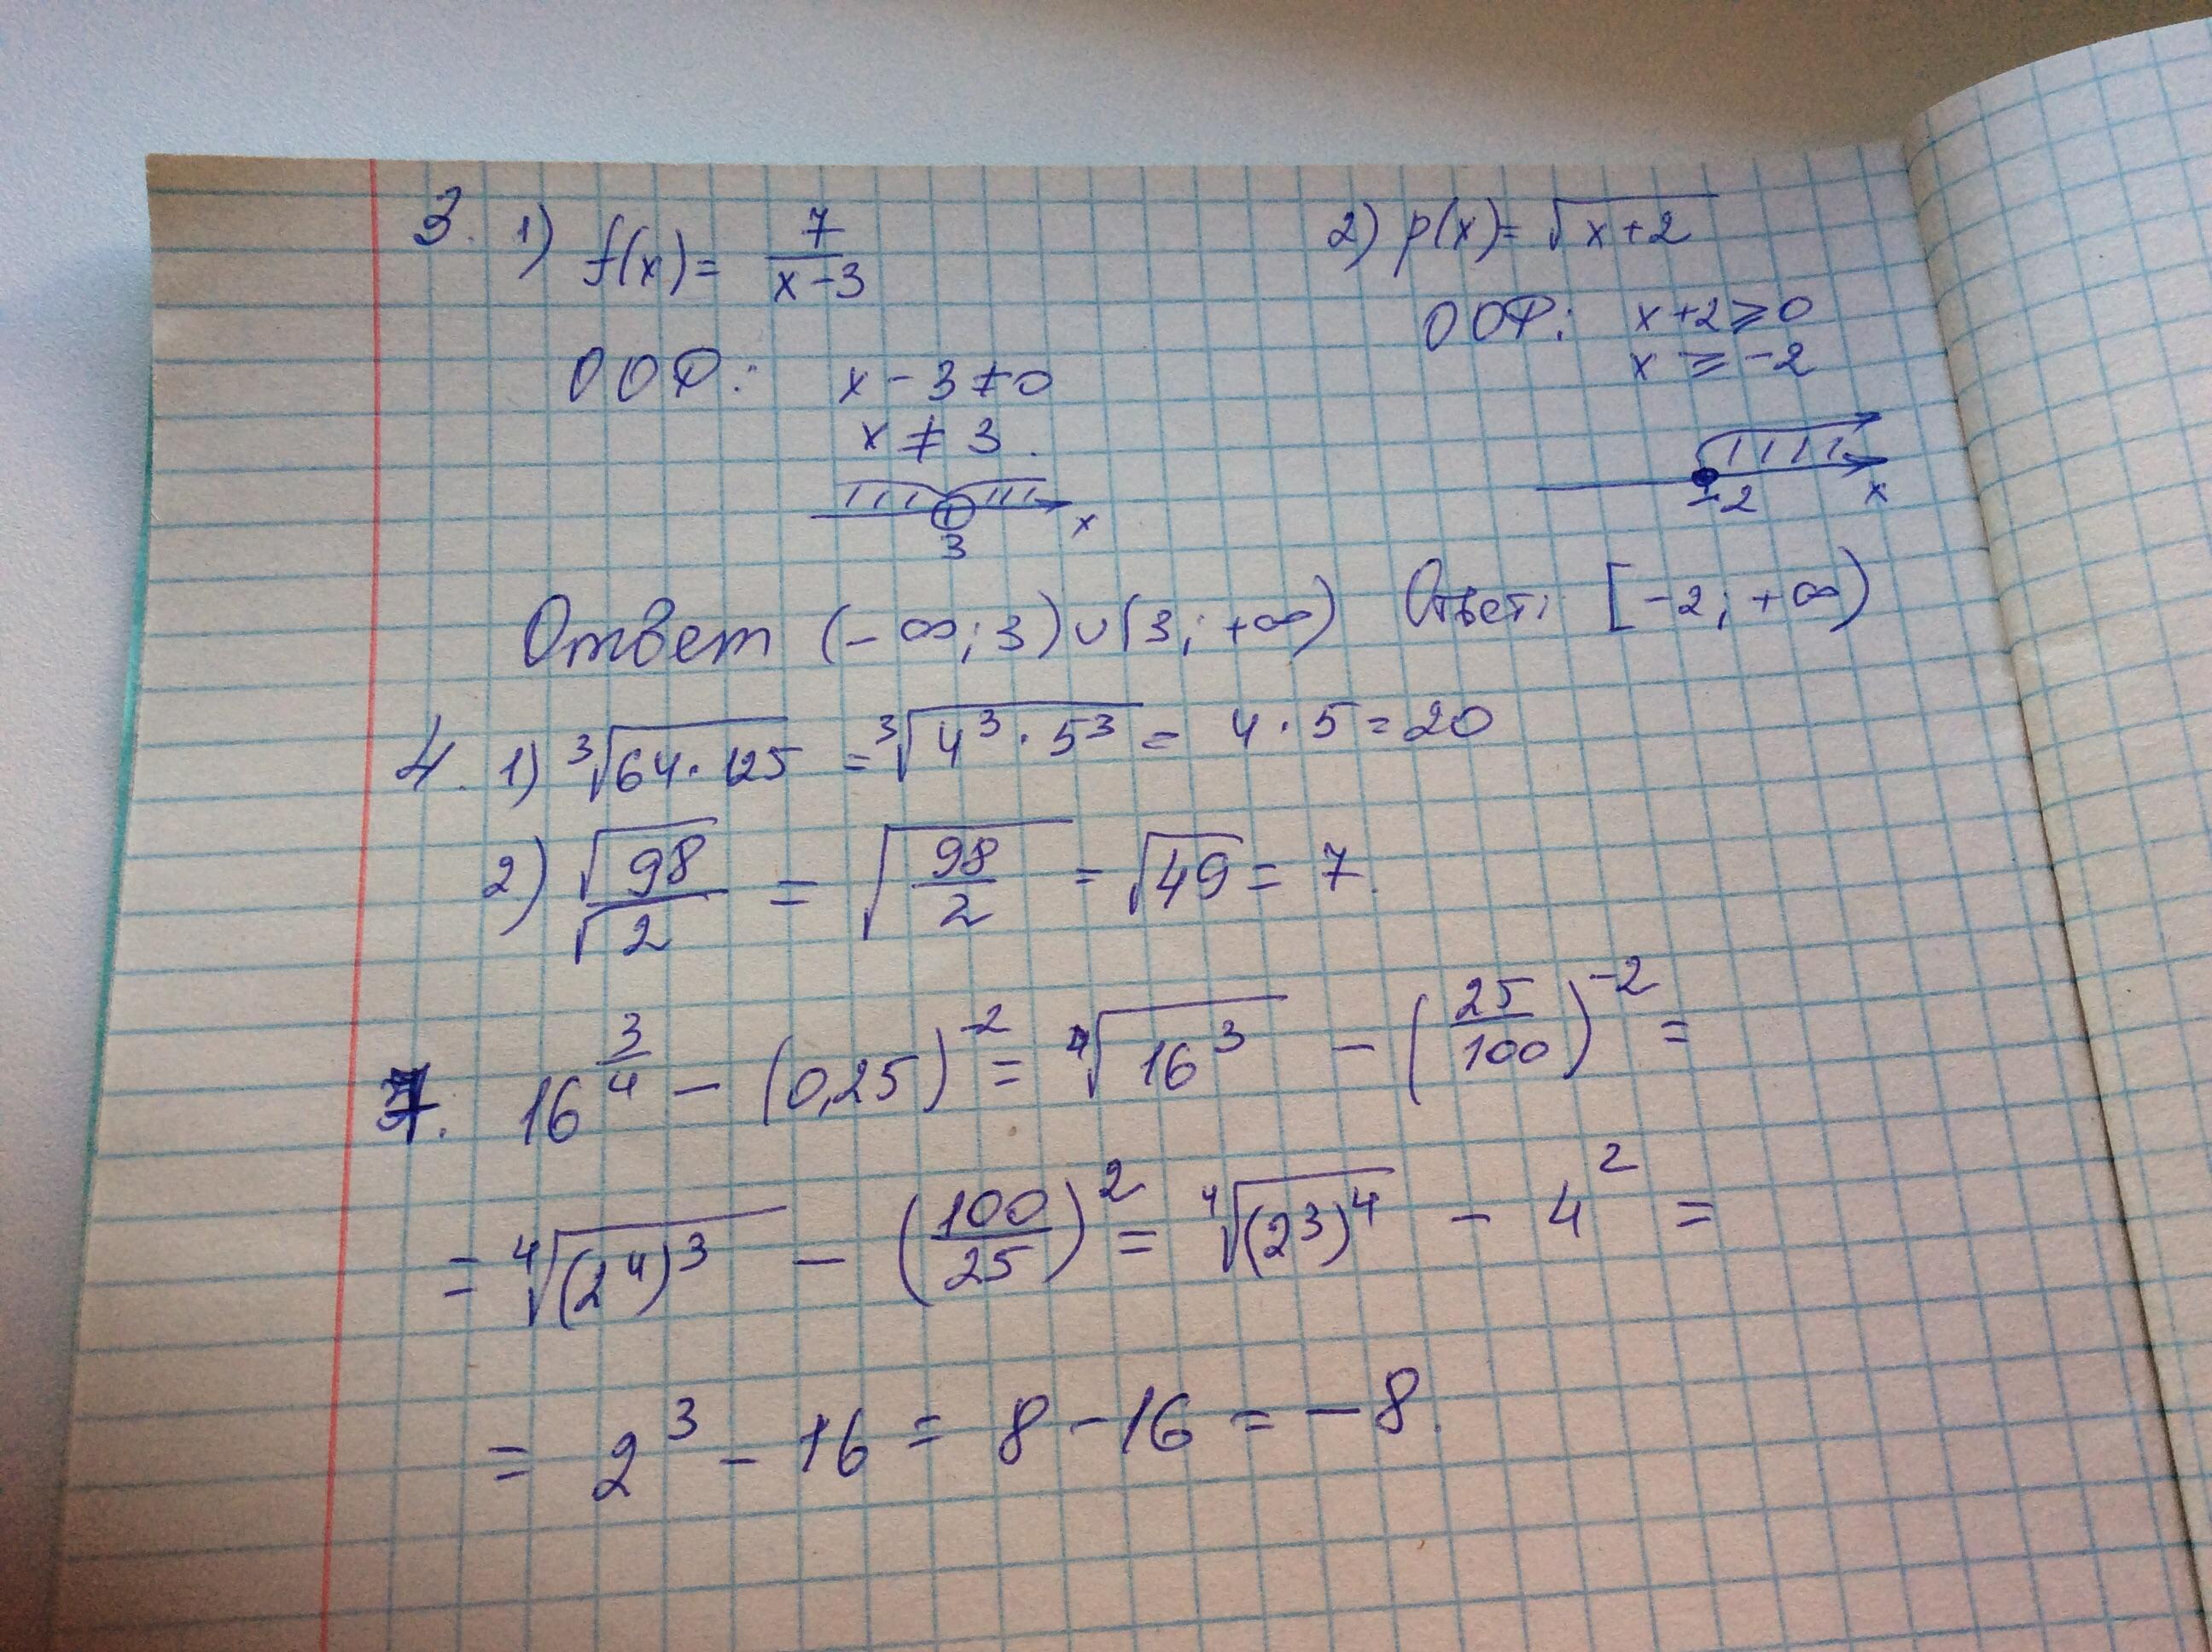 3. 1) f(x) = 7/(x-3)
ООФ: x - 3 ≠ 0
x ≠ 3.
3 x
Ответ (-∞; 3) ∪ (3; +∞)
2) p(x) = √(x+2)
ООФ: x+2 ⩾ 0
x ⩾ -2
-2 x
Ответ: [-2; +∞)
4. 1) ³√(64·125) = ³√(4³·5³) = 4·5 = 20
2) √98/√2 = √(98/2) = √49 = 7.
7. 16^(3/4) - (0,25)^(-2) = ⁴√(16³) - (25/100)^(-2) =
= ⁴√((2⁴)³) - (100/25)² = ⁴√((2³)⁴) - 4² =
= 2³ - 16 = 8 - 16 = -8.